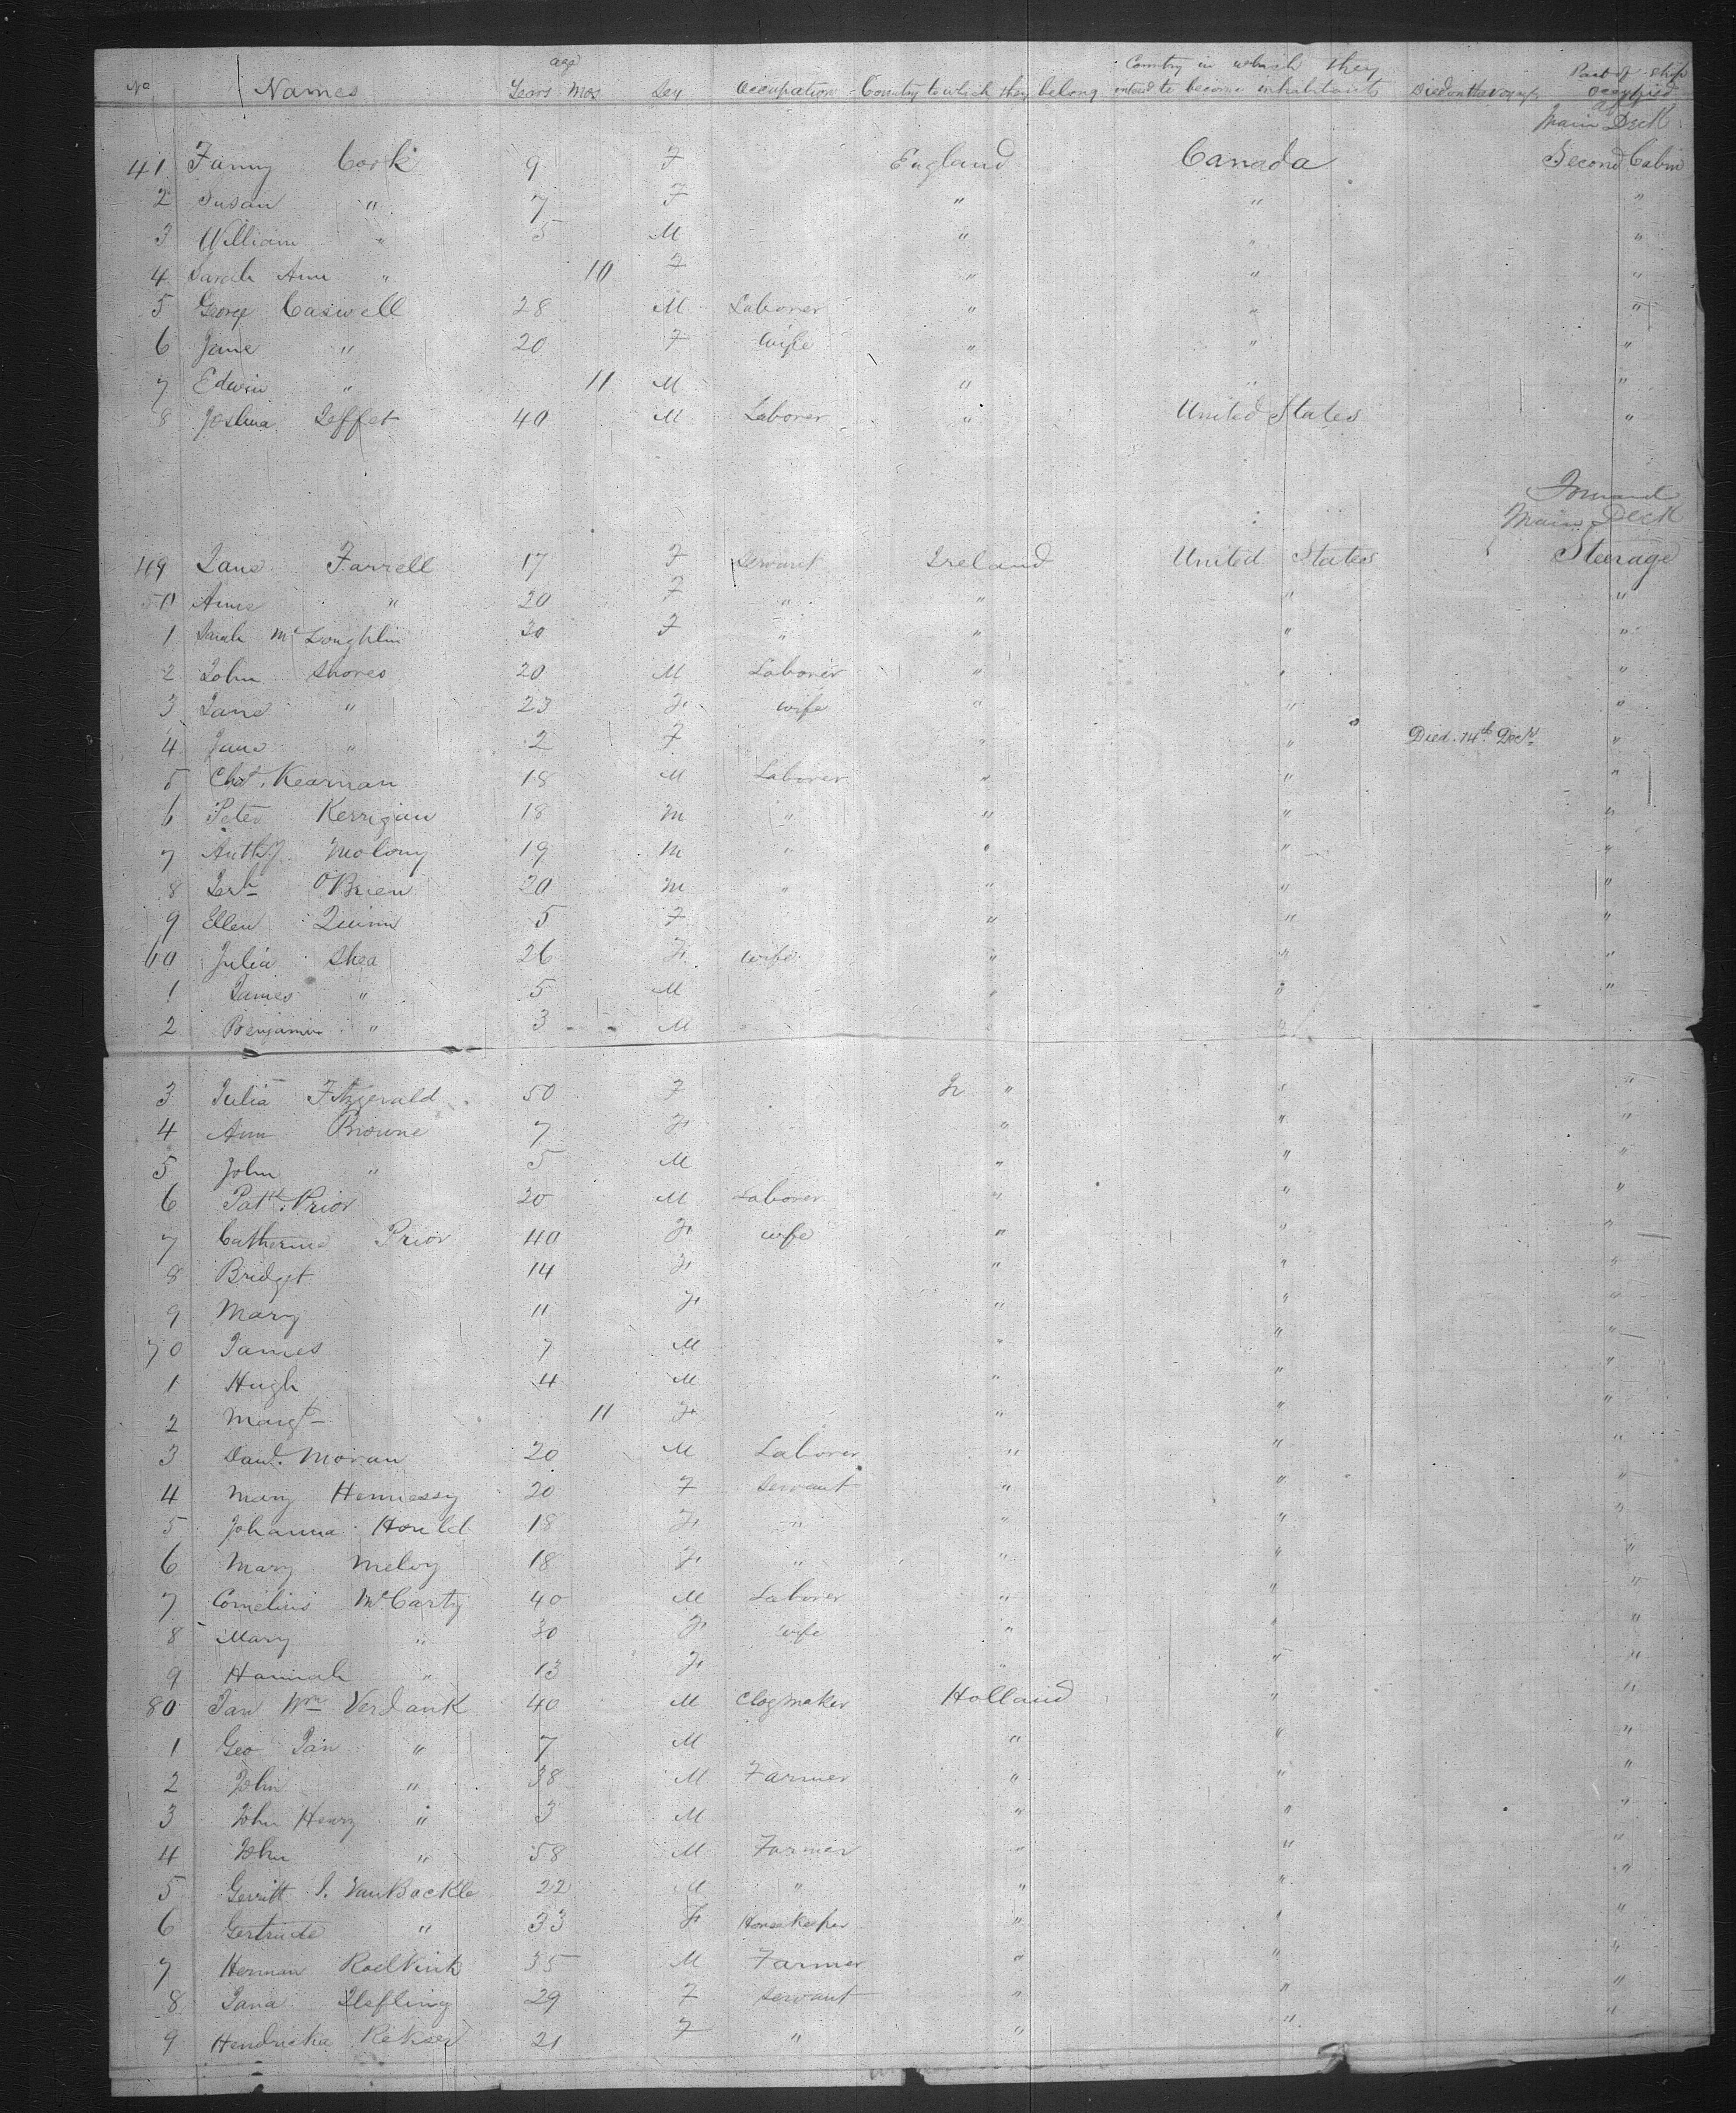 No Names age Years Mos Sex Occupation Country to which they belong Country in which they intend to become inhabitants Died on the voyage Part of Ship occupied
Aft Main Deck
41 Fanny Cork 9 F England Canada Second Cabin
2 Susan " 7 F " " "
3 William " 5 M " " "
4 Sarah Ann " 10 F " " "
5 George Caswell 28 M Laborer " " "
6 Jane " 20 F Wife " " "
7 Edwin " 11 M " " "
8 Joshua Leffet 40 M Laborer " United States "
Forward Main Deck
49 Jane Farrell 17 F Servant Ireland United States Steerage
50 Anne " 20 F " " " "
1 Sarah McLoughlin 30 F " " " "
2 John Shores 20 M Laborer " " "
3 Jane " 23 F wife " " "
4 Jane " 2 F " " Died 14th Decr "
5 Chs. Kearnan 18 M Laborer " " "
6 Peter Kerrigan 18 M " " " "
7 Anthy. Molony 19 M " " " "
8 Jerh O'Brien 20 M " " " "
9 Ellen Quinn 5 F " " "
60 Julia Shea 26 F wife " " "
1 James " 5 M " " "
2 Benjamin " 3 M " "
3 Julia Fitzgerald 50 F Ir " " "
4 Ann Browne 7 F " " "
5 John " 5 M " " "
6 Patt. Prior 30 M Laborer " " "
7 Catherine Prior 40 F wife " " "
8 Bridget 14 F " " "
9 Mary 11 F " " "
70 James 7 M " " "
1 Hugh 4 M " " "
2 Margt 11 F " " "
3 Danl. Moran 20 M Laborer " " "
4 Mary Hennessy 20 F Servant " " "
5 Johanna 18 F " " " "
6 Mary Meloy 18 F " " " "
7 Cornelius McCarty 40 M Laborer " " "
8 Mary " 30 F wife " " "
9 Hannah " 13 F " " "
80 Jan Wm VerJank 40 M Clogmaker Holland " "
1 Geo Jan " 7 M " " "
2 John " 38 M Farmer " " "
3 John Henry " 3 M " " "
4 John " 58 M Farmer " " "
5 Gerritt J. VanBackle 22 M " " " "
6 Gertrude " 33 F Housekeeper " " "
7 Herman Roelvink 35 M Farmer " " "
8 Jana 29 F Servant " " "
9 Hendricka Rekser 21 F " " "